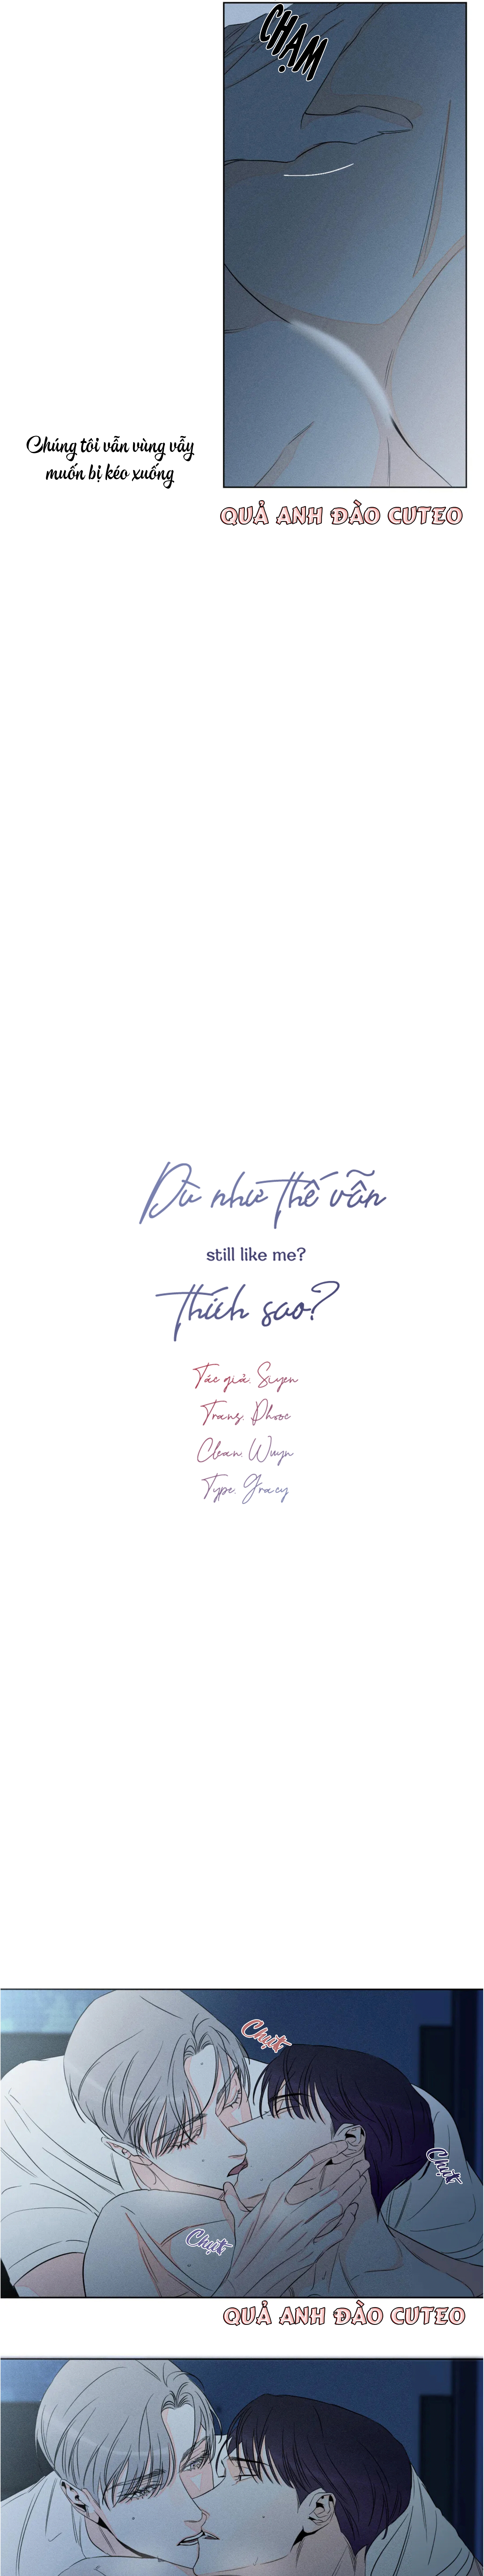 CHẠM
Chúng tôi vẫn vùng vẫy
muốn bị kéo xuống
QUẢ ANH ĐÀO CUTEO
Dù như thế vẫn
still like me?
thích sao?
Tác giả. Siyen
Trans. Phooc
Clean. Wuyn
Type. Gracy
Chụt
Chụt
Chụt
QUẢ ANH ĐÀO CUTEO